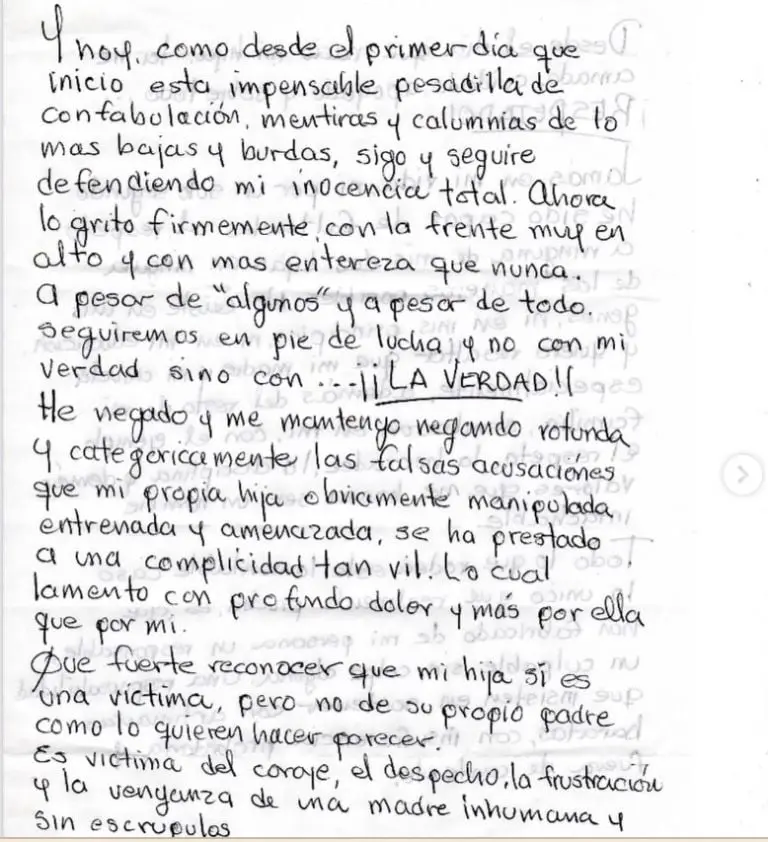 Y hoy, como desde el primer día que
inicio esta impensable pesadilla de
confabulación, mentiras y calumnias de lo
mas bajas y burdas, sigo y seguire
defendiendo mi inocencia total. Ahora
lo grito firmemente, con la frente muy en
alto y con mas entereza que nunca.
A pesar de "algunos" y a pesar de todo.
seguiremos en pie de lucha, y no con mi
verdad sino con ...¡¡LA VERDAD!!
He negado y me mantengo negando rotunda
y categoricamente las falsas acusaciónes
que mi propia hija obviamente manipulada,
entrenada y amenazada, se ha prestado
a una complicidad tan vil. Lo cual
lamento con profundo dolor y más por ella
que por mi.
Que fuerte reconocer que mi hija si es
una victima, pero no de su propio padre
como lo quieren hacer parecer.
Es victima del coraje, el despecho, la frustración
y la venganza de una madre inhumana y
sin escrupulos